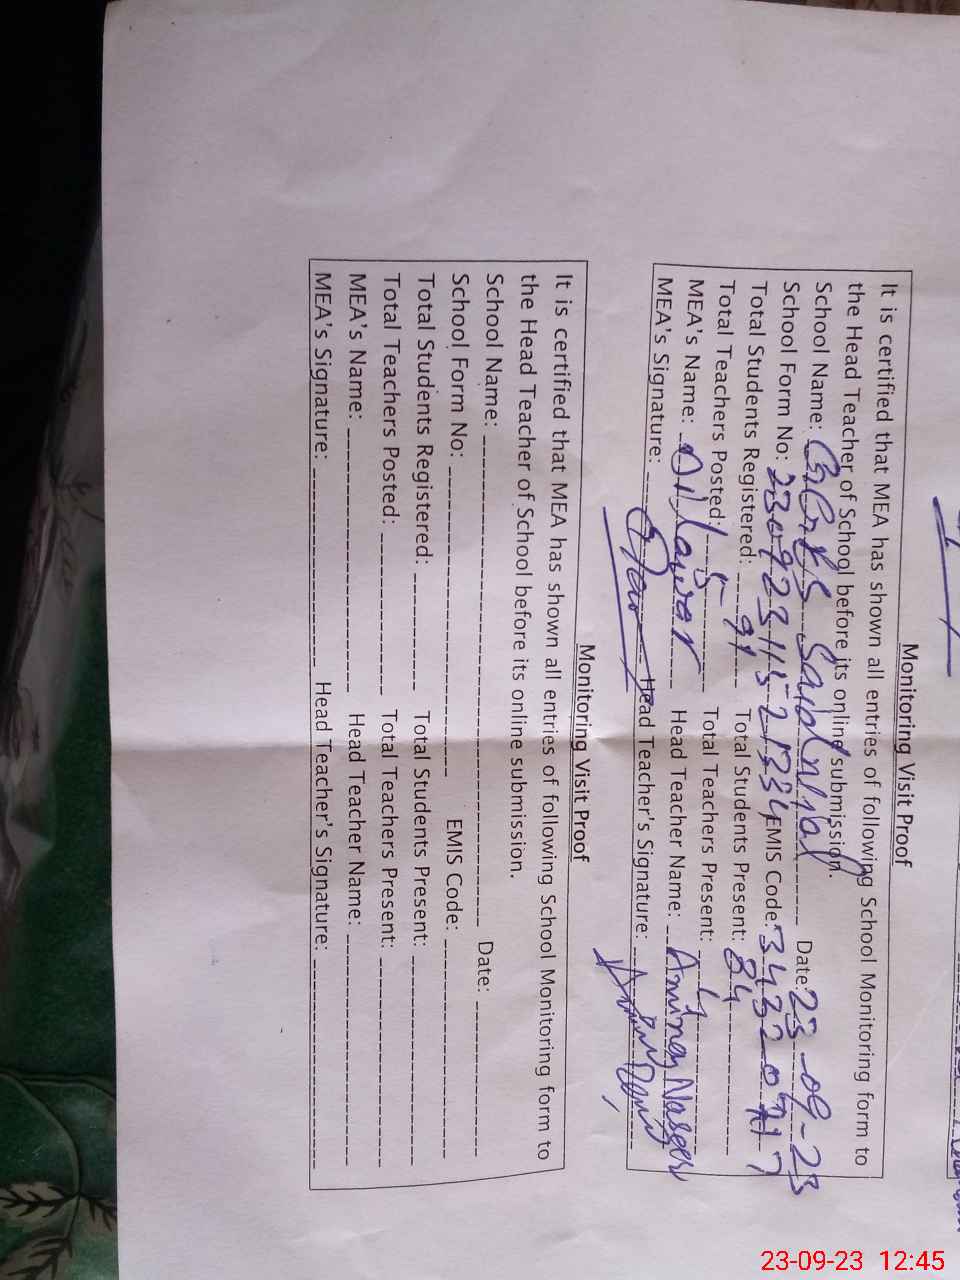 Monitoring Visit Proof
It is certified that MEA has shown all entries of following School Monitoring form to
the Head Teacher of School before its online submission.
School Name: Date: 23-09-23
School Form No: EMIS Code:
Total Students Registered: 91 Total Students Present: 84
Total Teachers Posted: 5 Total Teachers Present:
MEA's Name: Dilawar Head Teacher Name: Amina
MEA's Signature: Head Teacher's Signature:
Monitoring Visit Proof
It is certified that MEA has shown all entries of following School Monitoring form to
the Head Teacher of School before its online submission.
School Name: Date:
School Form No: EMIS Code:
Total Students Registered: Total Students Present:
Total Teachers Posted: Total Teachers Present:
MEA's Name: Head Teacher Name:
MEA's Signature: Head Teacher's Signature:
23-09-23 12:45